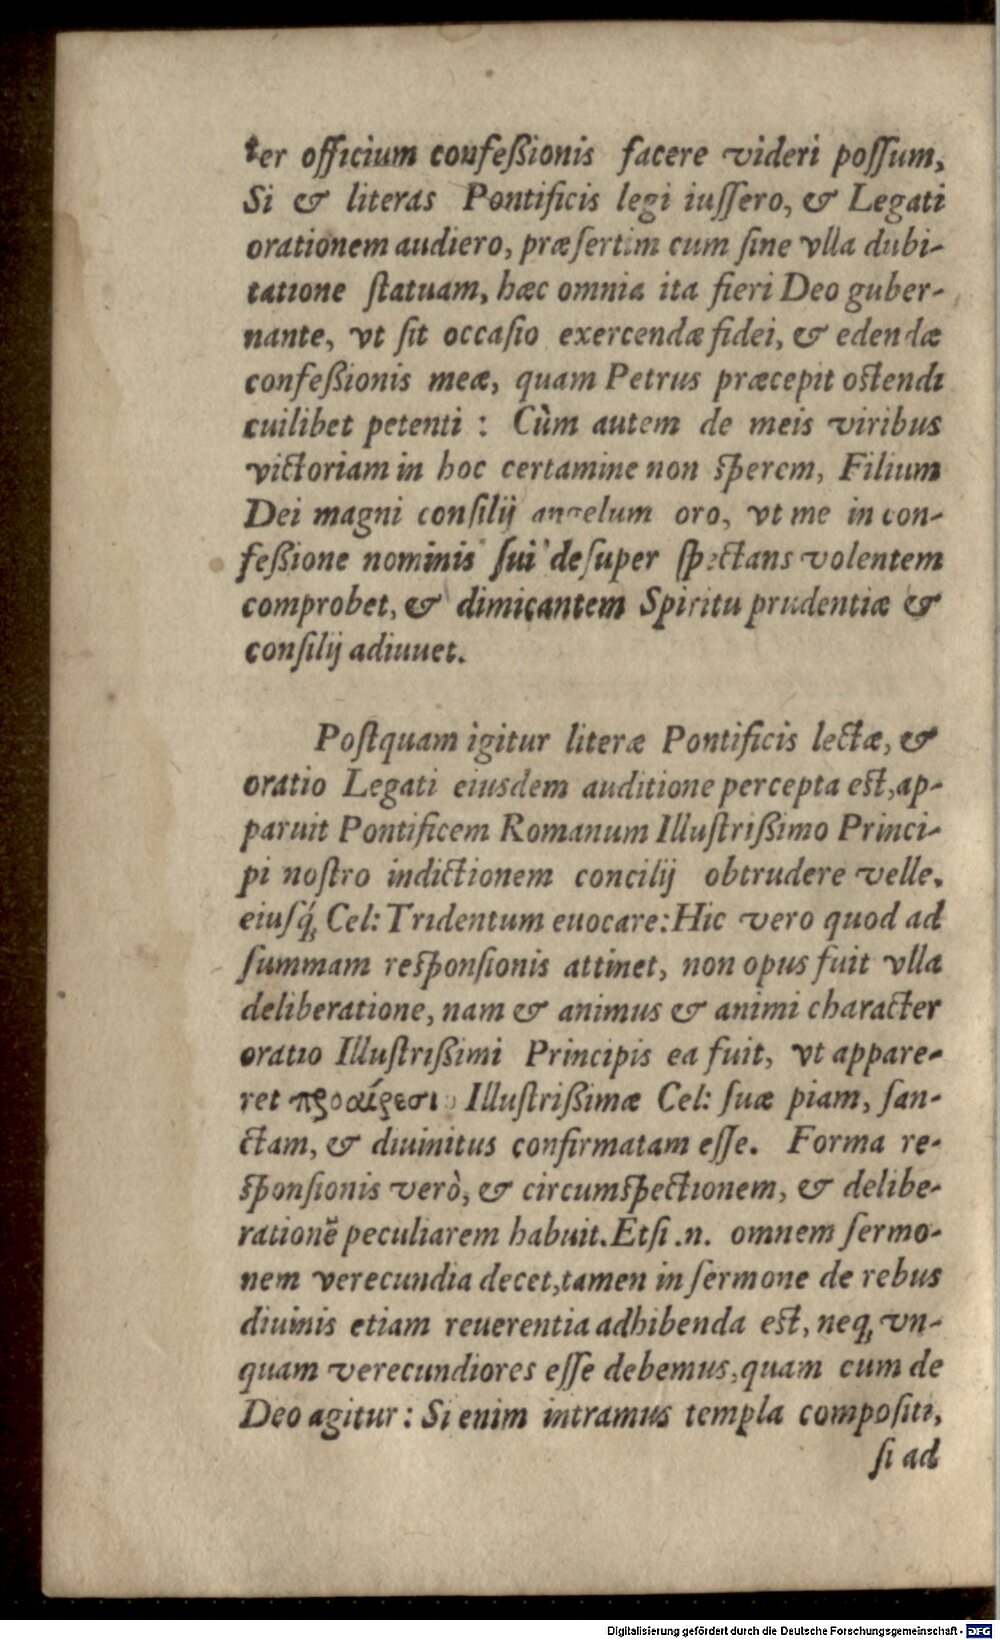 ter officium confeßionis facere videri poſſum,
Si & literas Pontificis legi iuſſero, & Legati
orationem audiero, præſertim cum ſine vlla dubi-
tatione ſtatuam, hæc omnia ita fieri Deo guber-
nante, vt ſit occaſio exercendæ fidei, & edendæ
confeßionis meæ, quam Petrus præcepit oſtendi
cuilibet petenti : Cùm autem de meis viribus
victoriam in hoc certamine non ſperem, Filium
Dei magni conſilij angelum oro, vt me in con-
feßione nominis ſui deſuper ſpectans volentem
comprobet, & dimicantem Spiritu prudentiæ &
conſilij adiuuet.
Poſtquam igitur literæ Pontificis lectæ, &
oratio Legati eiusdem auditione percepta eſt, ap-
paruit Pontificem Romanum Illuſtrißimo Princi-
pi noſtro indictionem concilij obtrudere velle,
eiuſq́; Cel: Tridentum euocare: Hic vero quod ad
ſummam reſponſionis attinet, non opus fuit vlla
deliberatione, nam & animus & animi character
oratio Illuſtrißimi Principis ea fuit, vt appare-
ret προαίρεσιν Illuſtrißimæ Cel: ſuæ piam, ſan-
ctam, & diuinitus confirmatam eſſe. Forma re-
ſponſionis verò, & circumſpectionem, & delibe-
rationē peculiarem habuit. Etſi .n. omnem ſermo-
nem verecundia decet, tamen in ſermone de rebus
diuinis etiam reuerentia adhibenda eſt, neq; vn-
quam verecundiores eſſe debemus, quam cum de
Deo agitur: Si enim intramus templa compoſiti,
ſi ad
Digitalisierung gefördert durch die Deutsche Forschungsgemeinschaft - DFG